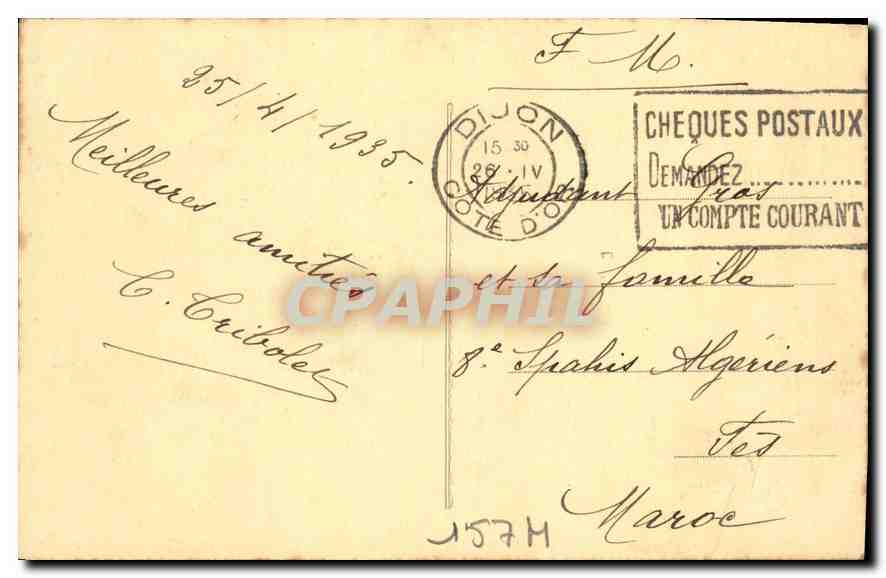 25/4/1935.
Meilleures
amitiés
C. Tribolet
F M.
DIJON
15 30
26 IV
COTE D'OR
CHEQUES POSTAUX
DEMANDEZ............
UN COMPTE COURANT
Adjudant Gros
et sa famille
8e Spahis Algériens
Fès
Maroc
157M
CPAPHIL